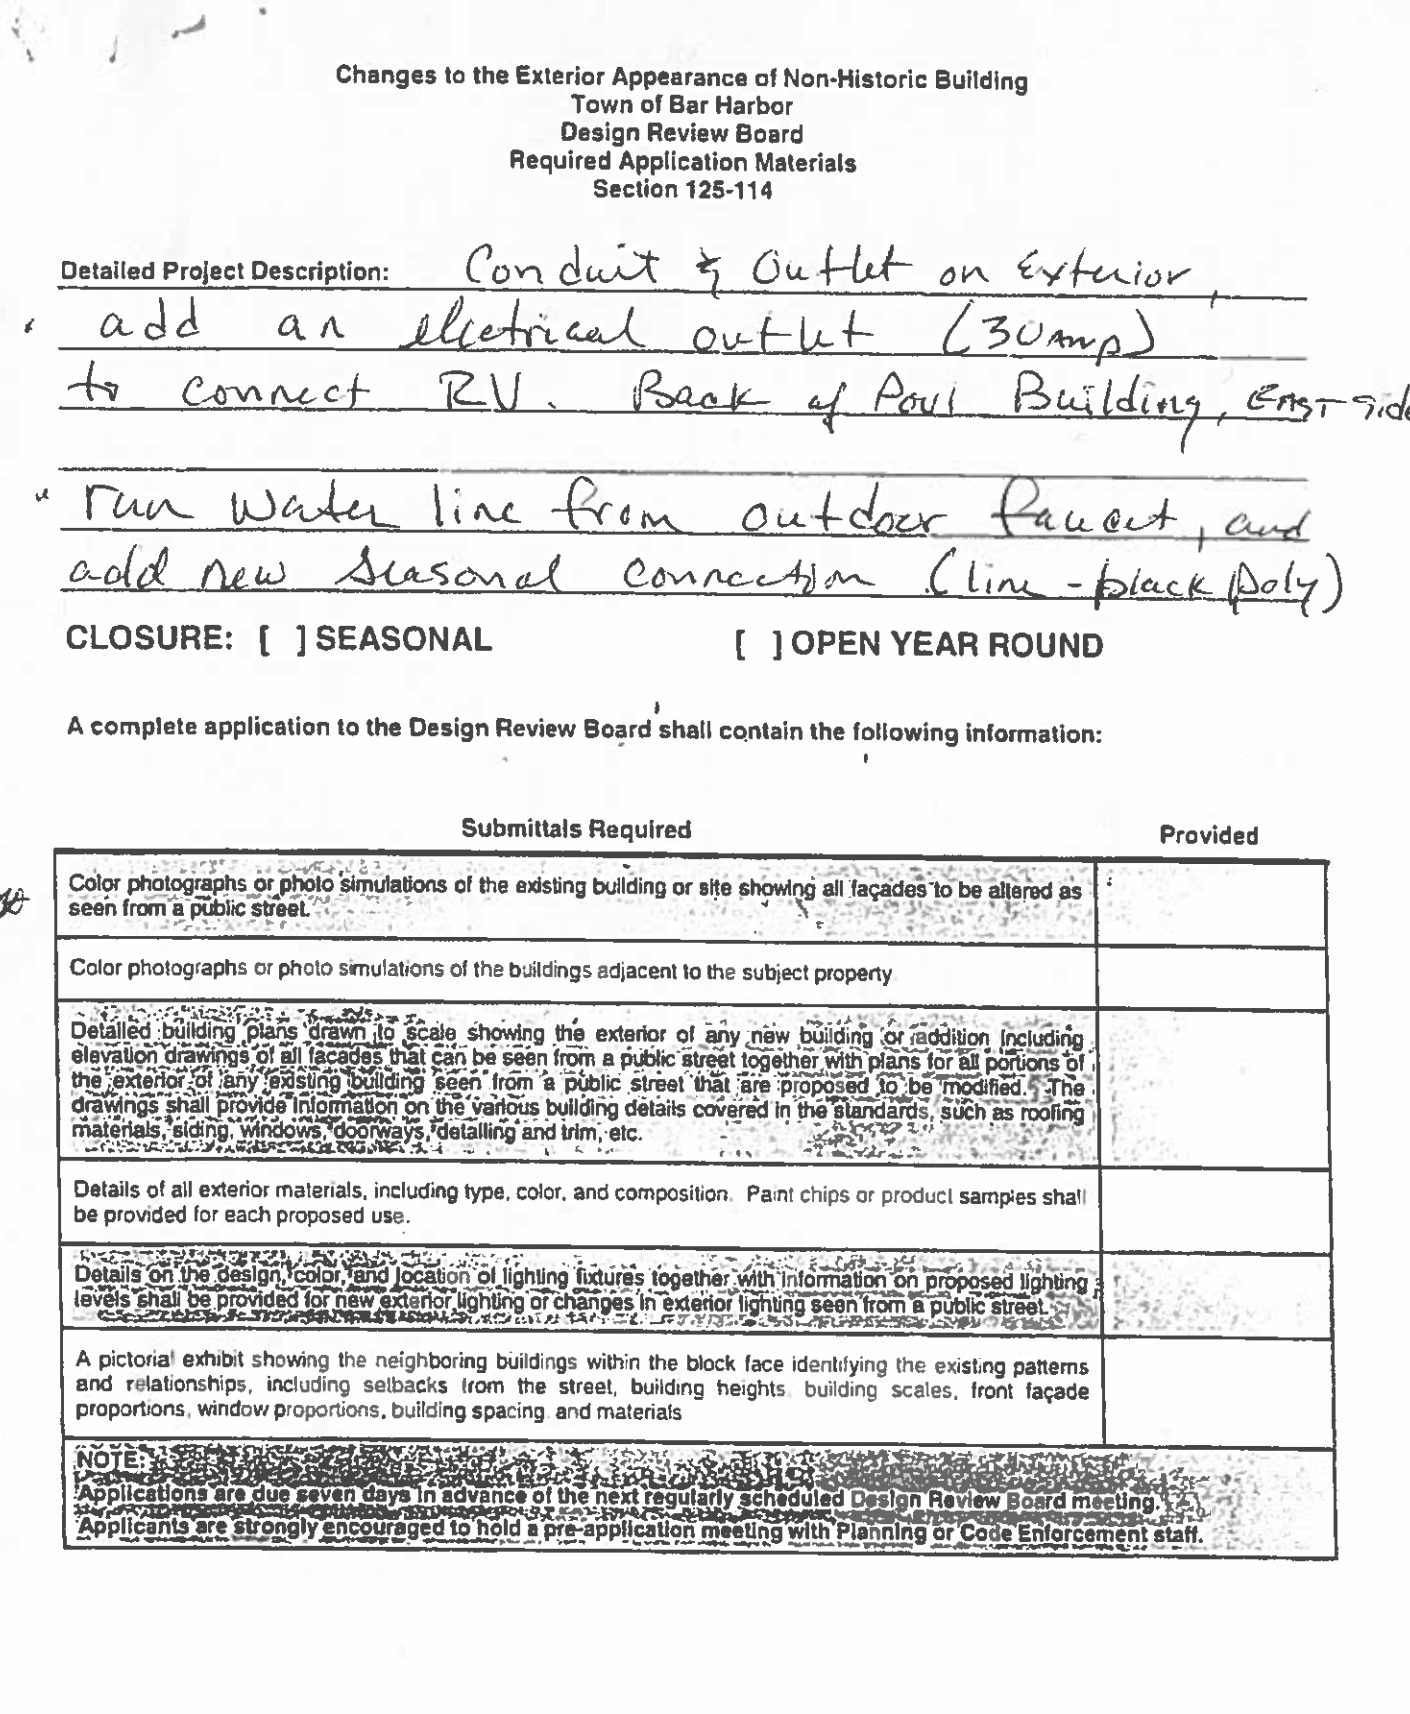 Changes to the Exterior Appearance of Non-Historic Building
Town of Bar Harbor
Design Review Board
Required Application Materials
Section 125-114
Detailed Project Description: Conduit & Outlet on Exterior,
add an electrical outlet (30Amp)
to connect RV. Back of Poul Building, East side
" run water line from outdoor faucet, and
add new seasonal connection (line - black poly)
CLOSURE: [ ] SEASONAL [ ] OPEN YEAR ROUND
A complete application to the Design Review Board shall contain the following information:
Submittals Required Provided
Color photographs or photo simulations of the existing building or site showing all façades to be altered as
seen from a public street.
Color photographs or photo simulations of the buildings adjacent to the subject property
Detailed building plans drawn to scale showing the exterior of any new building or addition including
elevation drawings of all facades that can be seen from a public street together with plans for all portions of
the exterior of any existing building seen from a public street that are proposed to be modified. The
drawings shall provide information on the various building details covered in the standards, such as roofing
materials, siding, windows, doorways, detailing and trim, etc.
Details of all exterior materials, including type, color, and composition. Paint chips or product samples shall
be provided for each proposed use.
Details on the design, color, and location of lighting fixtures together with information on proposed lighting
levels shall be provided for new exterior lighting or changes in exterior lighting seen from a public street.
A pictorial exhibit showing the neighboring buildings within the block face identifying the existing patterns
and relationships, including setbacks from the street, building heights, building scales, front façade
proportions, window proportions, building spacing and materials
NOTE:
Applications are due seven days in advance of the next regularly scheduled Design Review Board meeting.
Applicants are strongly encouraged to hold a pre-application meeting with Planning or Code Enforcement staff.